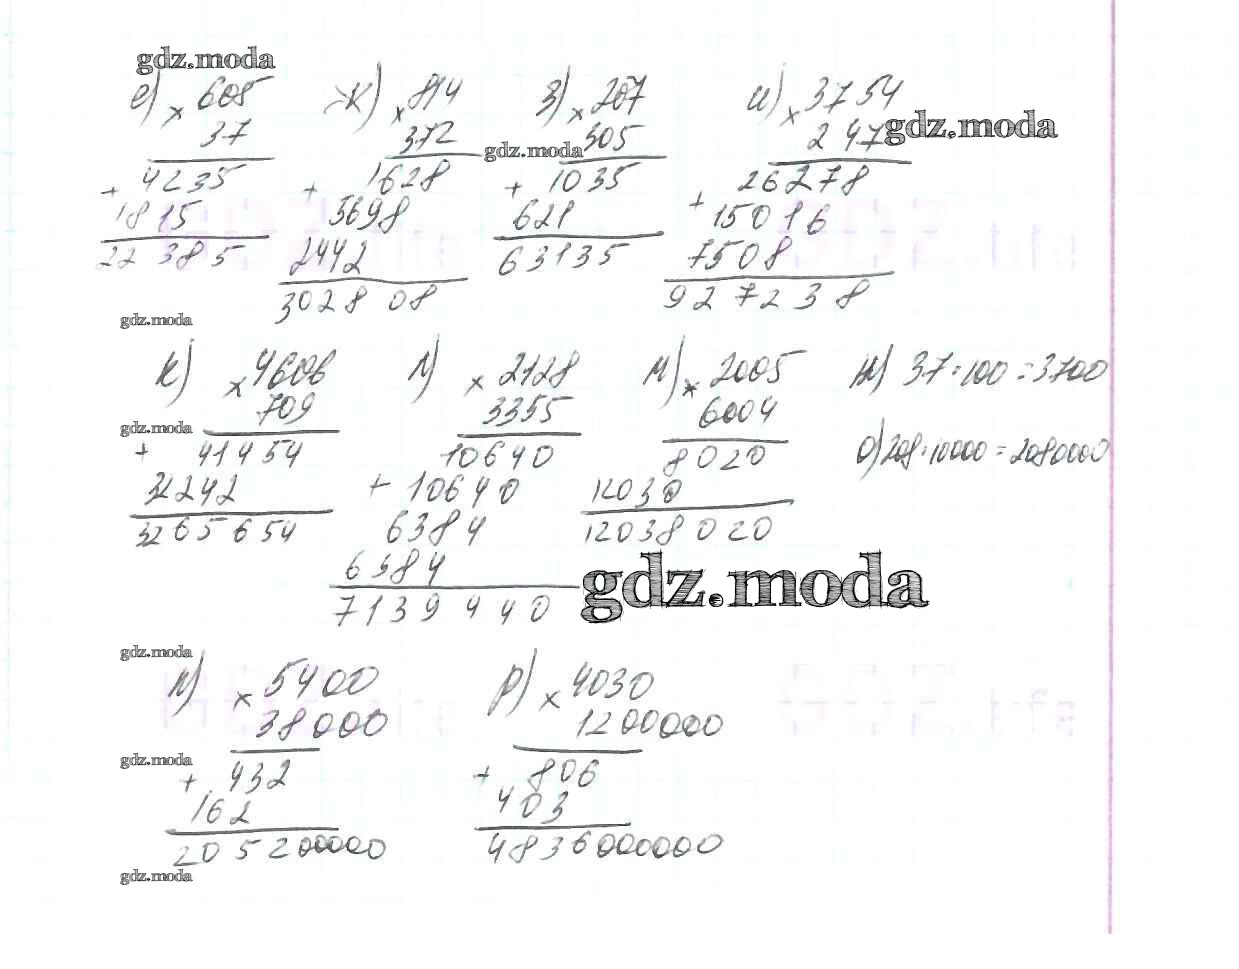 gdz.moda
е) × 605 ж) × 814 з) × 207 и) × 3754
37 372 305 247 gdz.moda
gdz.moda
+ 4235 + 1628 + 1035 + 26278
1815 5698 621 15016
22385 2442 63135 7508
302808 927238
gdz.moda
к) × 4606 л) × 2128 м) × 2005 н) 37·100=3700
709 3355 6004
gdz.moda
+ 41454 10640 8020 о) 208·10000=2080000
32242 + 10640 12030
3265654 6384 12038020
6384 gdz.moda
7139440
gdz.moda
п) × 5400 р) × 4030
38000 1200000
gdz.moda
+ 432 + 806
162 403
205200000 4836000000
gdz.moda